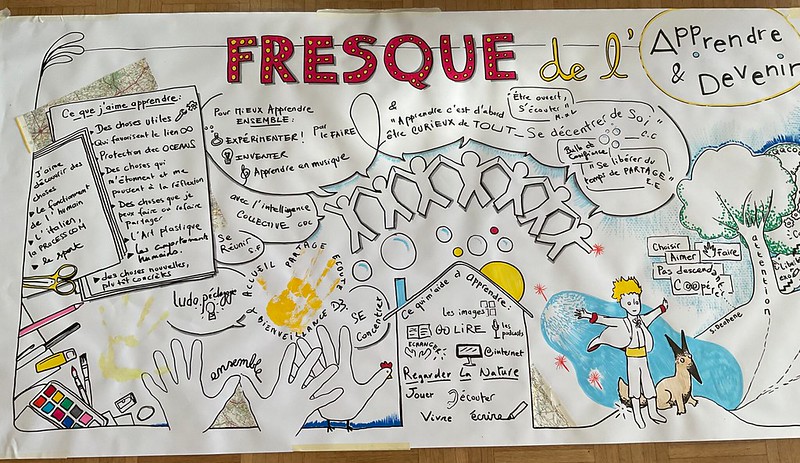 FRESQUE de l'
Apprendre
& Devenir
Ce que j'aime apprendre :
Des choses utiles
Qui favorisent le lien
Protection des OCEANS
Des choses qui
m'étonnent et me
poussent à la réflexion
Des choses que je
peux faire ou refaire
Partager
L'Art plastique
Les comportements
humains.
des choses nouvelles,
plutôt concrètes
J'aime
découvrir des
choses
Le fonctionnement
de l'humain
L'italien,
la PROCESSCOM
Le sport
Pour MiEUX Apprendre
ENSEMBLE :
EXPÉRIMENTER ! par le FAIRE
INVENTER
Apprendre en musique
avec l'intelligence
COLLECTIVE CDC
Se
Réunir
S.F
&
"Apprendre c'est d'abord
être CURIEUX de TOUT
Être ouvert,
S'écouter"
Se décentrer de Soi"
Bulle de
Confiance
"Se libérer du
temps de PARTAGE"
E.E
ACCUEIL PARTAGE ECOUTE
BIENVEILLANCE
ludo.pédagogie
SE
Concentrer
ensemble
Ce qui m'aide à apprendre :
les images
LiRE
les
podcasts
ECHANGER
@internet
Regarder La Nature
Jouer écouter
Vivre écrire
Choisir
Aimer Faire
Pas descend
C@opérer
attention
S. Desbene